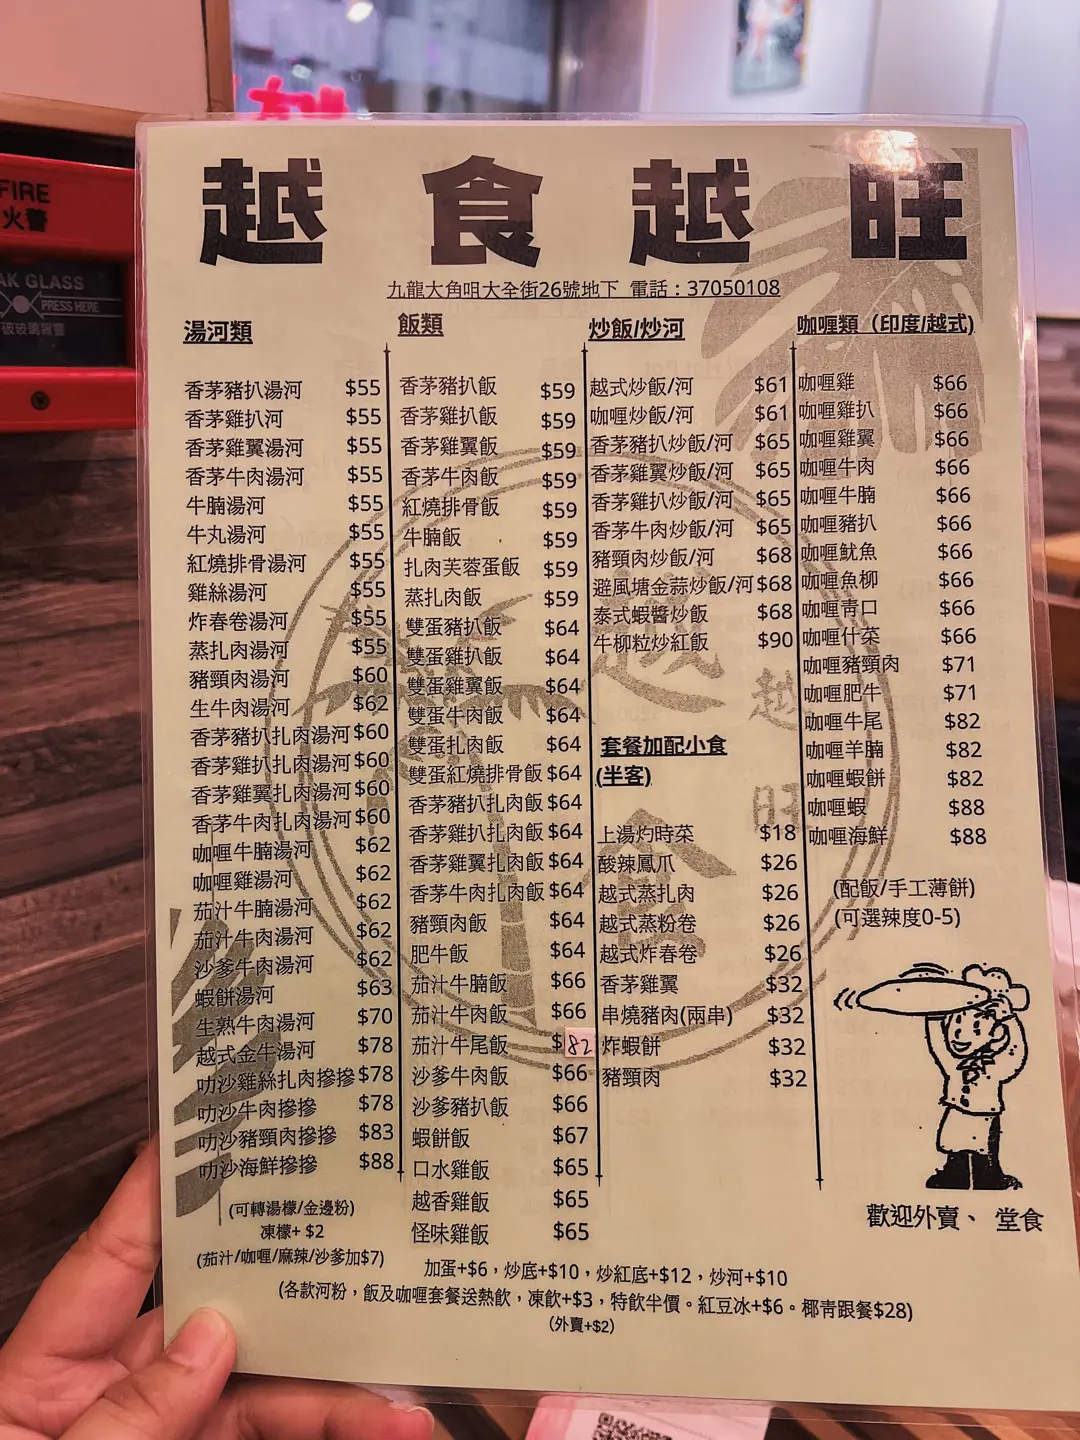 FIRE
火警
AK GLASS
PRESS HERE
越食越旺
九龍大角咀大全街26號地下 電話：37050108
湯河類
香茅豬扒湯河 $55
香茅雞扒河 $55
香茅雞翼湯河 $55
香茅牛肉湯河 $55
牛腩湯河 $55
牛丸湯河 $55
紅燒排骨湯河 $55
雞絲湯河 $55
炸春卷湯河 $55
蒸扎肉湯河 $55
豬頸肉湯河 $60
生牛肉湯河 $62
香茅豬扒扎肉湯河 $60
香茅雞扒扎肉湯河 $60
香茅雞翼扎肉湯河 $60
香茅牛肉扎肉湯河 $60
咖喱牛腩湯河 $62
咖喱雞湯河 $62
茄汁牛腩湯河 $62
茄汁牛肉湯河 $62
沙爹牛肉湯河 $62
蝦餅湯河 $63
生熟牛肉湯河 $70
越式金牛湯河 $78
叻沙雞絲扎肉摻摻 $78
叻沙牛肉摻摻 $78
叻沙豬頸肉摻摻 $83
叻沙海鮮摻摻 $88
(可轉湯檬/金邊粉)
凍檬+ $2
(茄汁/咖喱/麻辣/沙爹加$7)
飯類
香茅豬扒飯 $59
香茅雞扒飯 $59
香茅雞翼飯 $59
香茅牛肉飯 $59
紅燒排骨飯 $59
牛腩飯 $59
扎肉芙蓉蛋飯 $59
蒸扎肉飯 $59
雙蛋豬扒飯 $64
雙蛋雞扒飯 $64
雙蛋雞翼飯 $64
雙蛋牛肉飯 $64
雙蛋扎肉飯 $64
雙蛋紅燒排骨飯 $64
香茅豬扒扎肉飯 $64
香茅雞扒扎肉飯 $64
香茅雞翼扎肉飯 $64
香茅牛肉扎肉飯 $64
豬頸肉飯 $64
肥牛飯 $64
茄汁牛腩飯 $66
茄汁牛肉飯 $66
茄汁牛尾飯 $82
沙爹牛肉飯 $66
沙爹豬扒飯 $66
蝦餅飯 $67
口水雞飯 $65
越香雞飯 $65
怪味雞飯 $65
炒飯/炒河
越式炒飯/河 $61
咖喱炒飯/河 $61
香茅豬扒炒飯/河 $65
香茅雞翼炒飯/河 $65
香茅雞扒炒飯/河 $65
香茅牛肉炒飯/河 $65
豬頸肉炒飯/河 $68
避風塘金蒜炒飯/河 $68
泰式蝦醬炒飯 $68
牛柳粒炒紅飯 $90
套餐加配小食
(半客)
上湯灼時菜 $18
酸辣鳳爪 $26
越式蒸扎肉 $26
越式蒸粉卷 $26
越式炸春卷 $26
香茅雞翼 $32
串燒豬肉(兩串) $32
炸蝦餅 $32
豬頸肉 $32
咖喱類（印度/越式)
咖喱雞 $66
咖喱雞扒 $66
咖喱雞翼 $66
咖喱牛肉 $66
咖喱牛腩 $66
咖喱豬扒 $66
咖喱魷魚 $66
咖喱魚柳 $66
咖喱青口 $66
咖喱什菜 $66
咖喱豬頸肉 $71
咖喱肥牛 $71
咖喱牛尾 $82
咖喱羊腩 $82
咖喱蝦餅 $82
咖喱蝦 $88
咖喱海鮮 $88
(配飯/手工薄餅)
(可選辣度0-5)
歡迎外賣、堂食
加蛋+$6，炒底+$10，炒紅底+$12，炒河+$10
(各款河粉，飯及咖喱套餐送熱飲，凍飲+$3，特飲半價。紅豆冰+$6。椰青跟餐$28)
(外賣+$2)